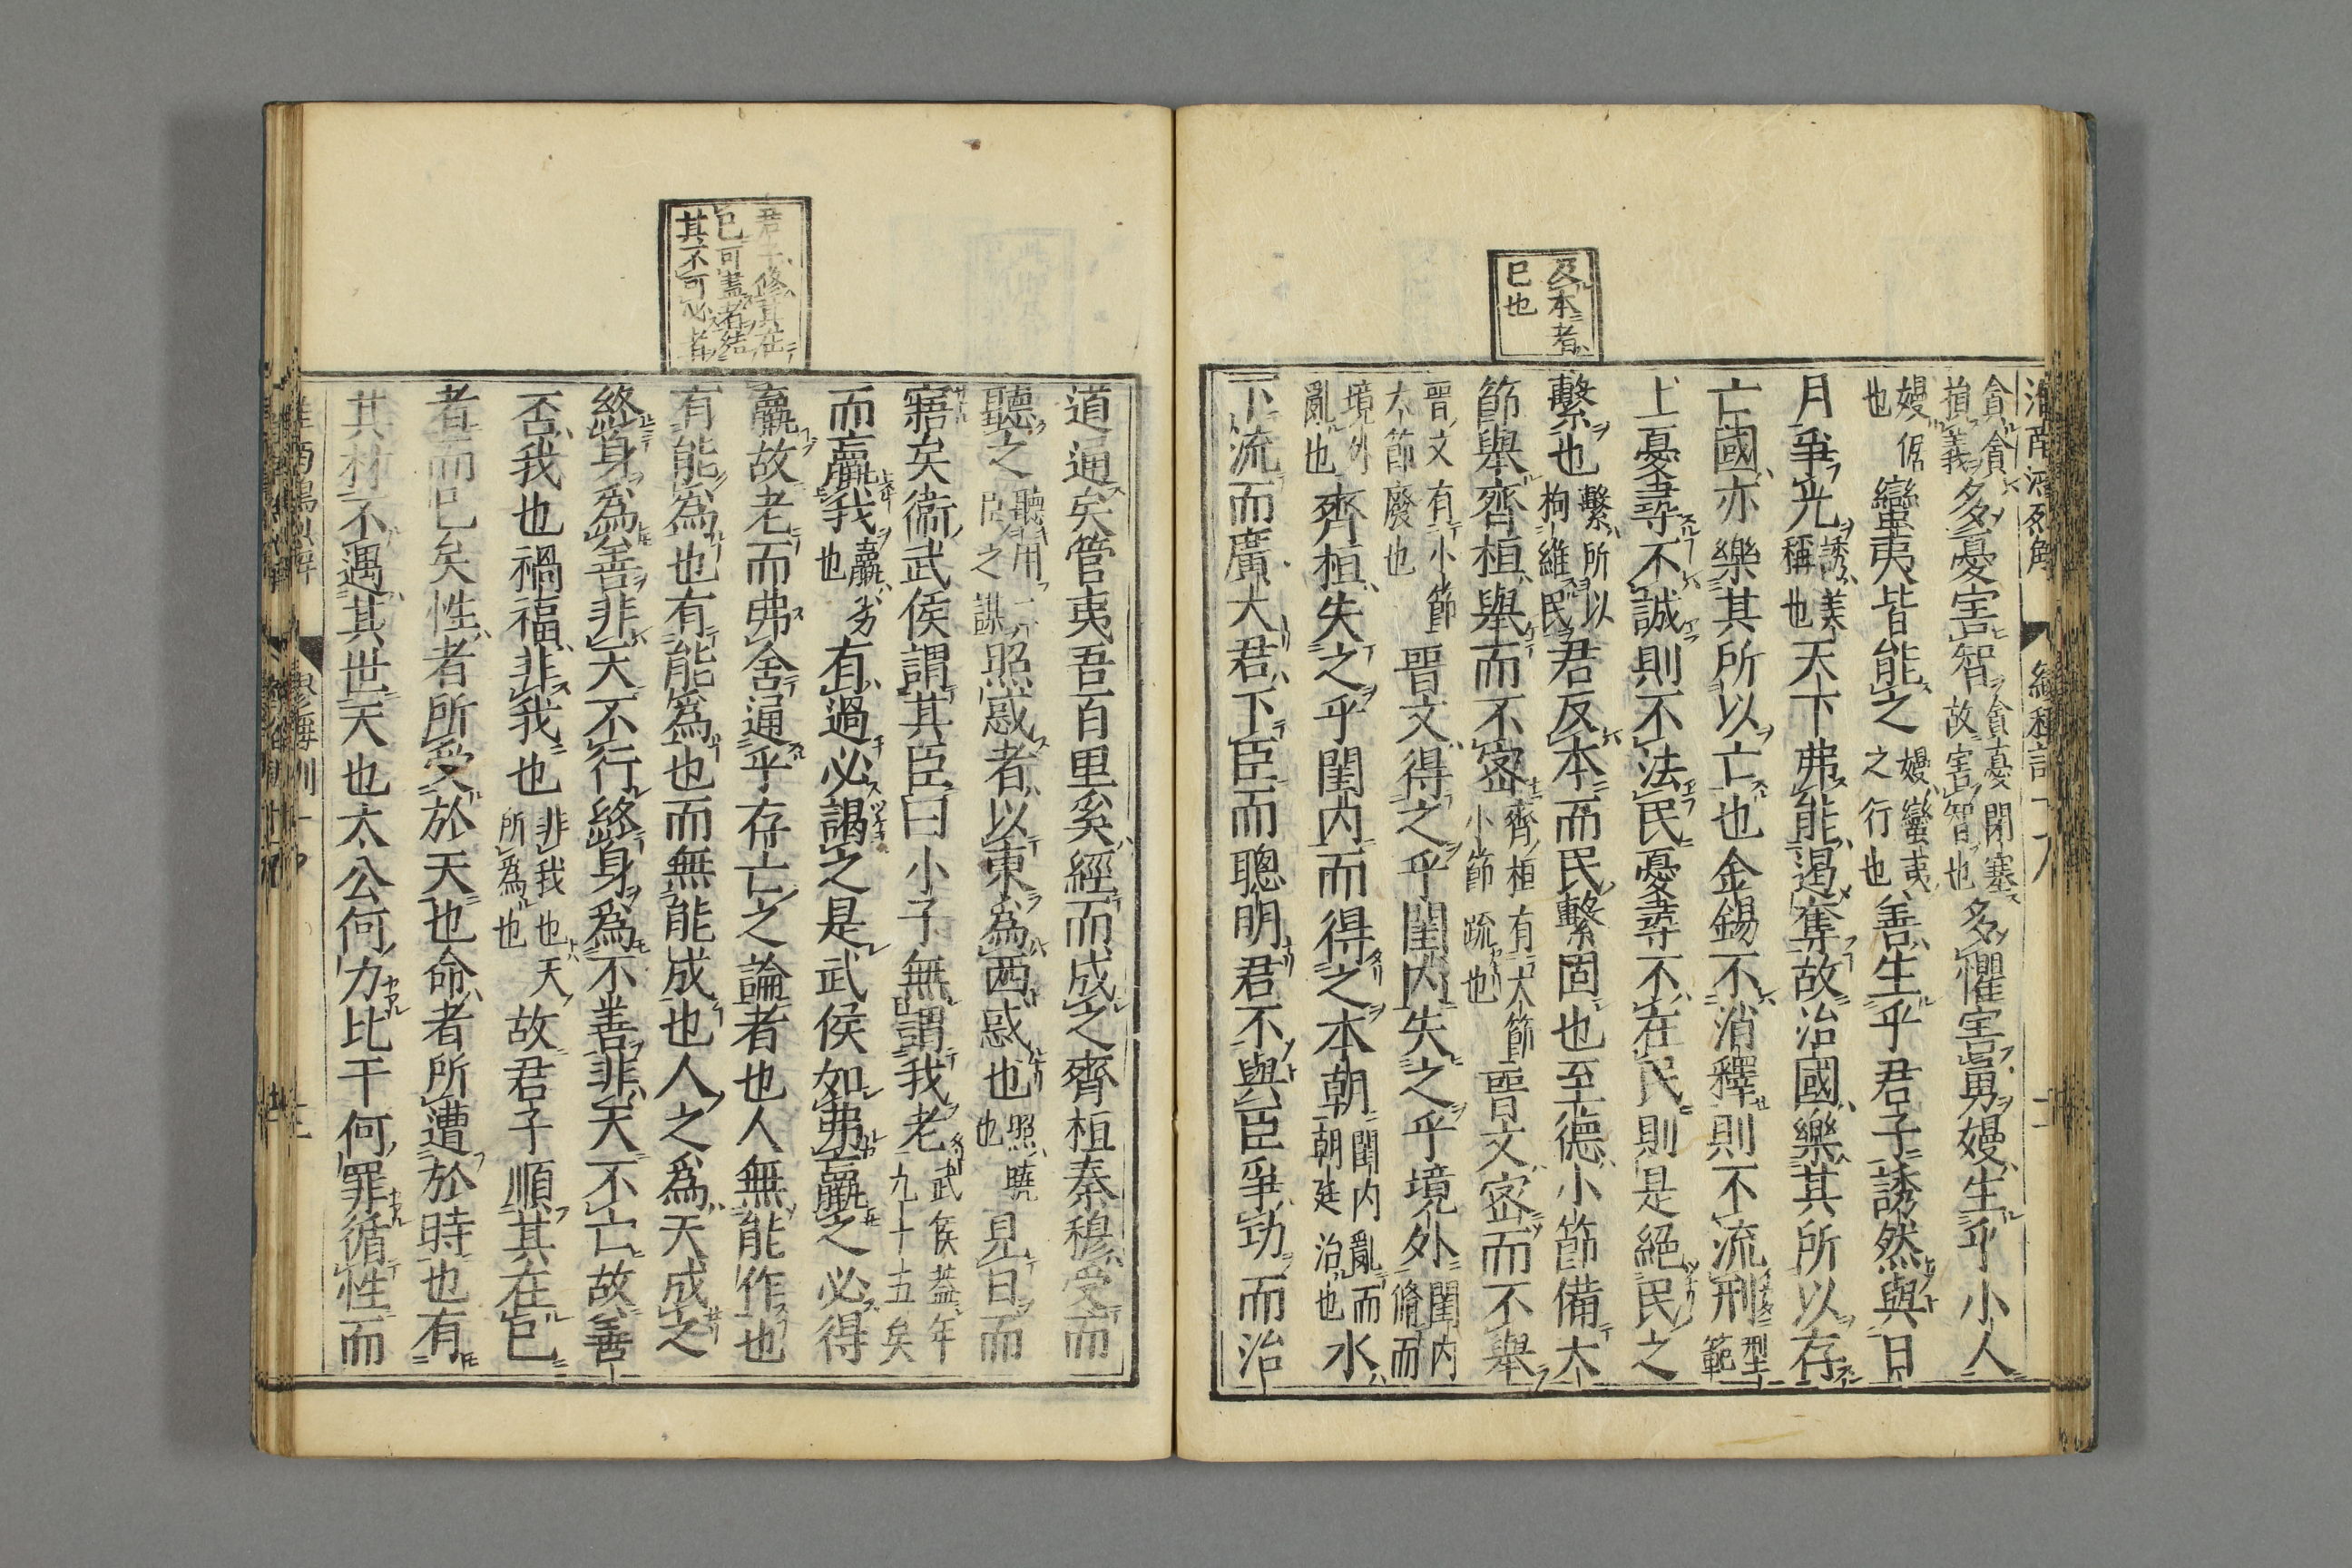 淮南鴻烈解 繆稱訓
貪貪損義多憂害智貪憂閉塞故害智也多懼害勇嫚生乎小人
嫚倨也蠻夷皆能之嫚蠻夷之行也善生乎君子誘然與日
月爭光誘美稱也天下弗能遏奪故治國樂其所以存
亡國亦樂其所以亡也金錫不消釋則不流刑型範
上憂尋不誠則不法民憂尋不在民則是絕民之
反本者
已也
繫也繫所以拘維民君反本而民繫固也至德小節備大
節舉齊桓舉而不密齊桓有大節小節疏也晉文密而不舉
晉文有小節大節廢也晉文得之乎閨内失之乎境外閨内脩而
境外亂也齊桓失之乎閨内而得之本朝閨内亂而朝廷治也水
下流而廣大君下臣而聰明君不與臣爭功而治
道通矣管夷吾百里奚經而成之齊桓秦穆受而
聽之聽用二臣之謀照惑者以東為西惑也照曉也見日而
寤矣衛武侯謂其臣曰小子無謂我老武侯蓋年九十五矣
而羸我羸劣也有過必謁之是武侯如弗羸之必得
君子修其在
已可蓋者結
其不可必者
羸故老而弗舍通乎存亡之論者也人無能作也
有能為也有能為也而無能成也人之為天成之
終身為善非天不行終身為不善非天不亡故善
否我也禍福非我也非我也天所為也故君子順其在已
者而已矣性者所受於天也命者所遭於時也有
其材不遇其世天也太公何力比干何罪循性而